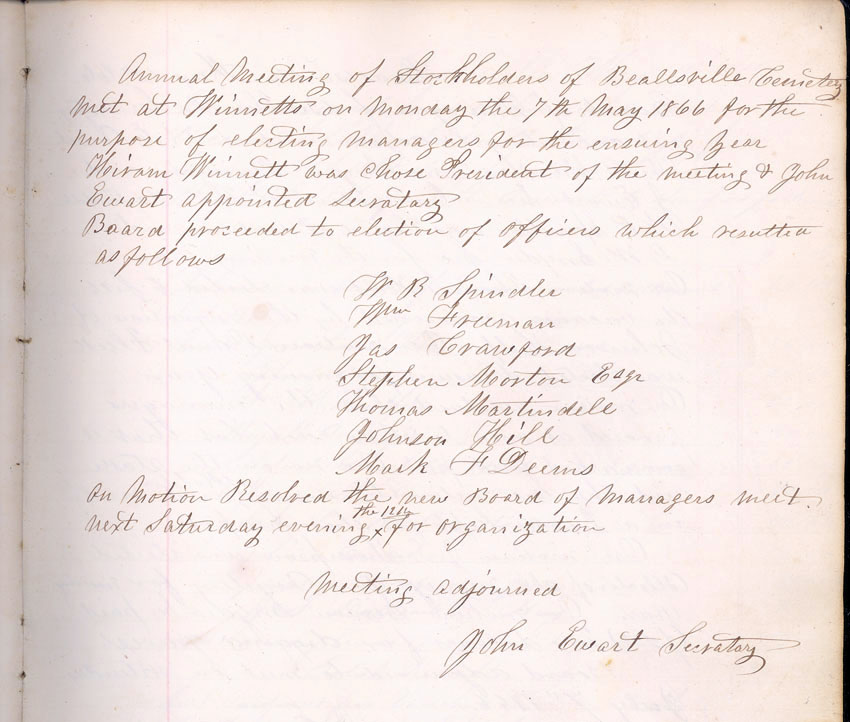 Annual Meeting of Stockholders of Beallsville Cemetery
met at Winnetts on Monday the 7th May 1866 for the
purpose of electing managers for the ensuing year
Hiram Winnett was chose President of the meeting & John
Ewart appointed Secratary
Board proceeded to election of officers which resulted
as follows
W B Spindler
Wm Freeman
Jas Crawford
Stephen Morton Esqr
Thomas Martindell
Johnson Hill
Mark F Deems
on motion Resolved the new Board of Managers meet
next Saturday evening x the 12th for organization
Meeting adjourned
John Ewart Secratary